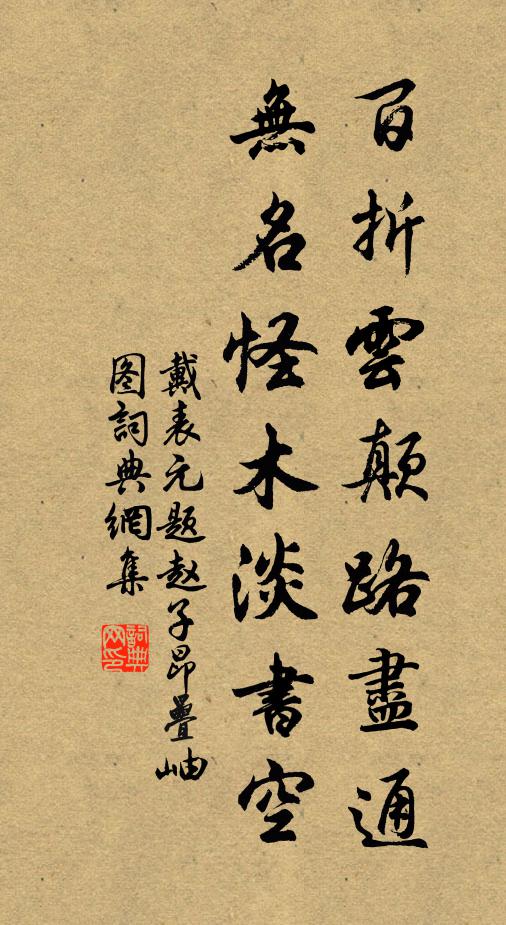 百折雲顛路盡通
無名怪木淡書空
戴表元题赵子昂疊岫
图詞典網集
詞典网印